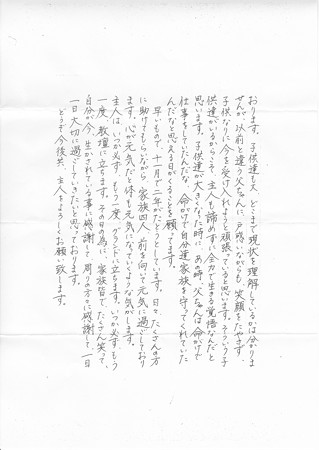 おります。子供達も又、どこまで現状を理解しているかは分かりま
せんが、以前と違う父ちゃんに、戸惑いながらも、笑顔をたやさず、
子供なりに今を受け入れようと頑張っていると思います。そういう子
供達がいるからこそ、主人も諦めずに全力で生きる覚悟なんだと
思います。子供達が大きくなった時に、あの時、父ちゃんは命がけで
仕事をしていたんだな、命がけで自分達家族を守ってくれていた
んだなと思える日がくることを願ってます。
早いもので、十一月で二年がたとうとしています。日々、たくさんの方
に助けてもらいながら、家族四人、前を向いて元気に過ごしており
ます。心が元気だと体も元気になっていくような気がします。
主人は、いつか必ず、もう一度、グランドに立ちます。いつか必ず、もう
一度、教壇に立ちます。その日の為に、家族皆で、たくさん笑って、
自分が今、生かされている事に感謝して、周りの方々に感謝して、一日
一日大切に過ごしていきたいと思っております。
どうぞ今後共、主人をよろしくお願い致します。